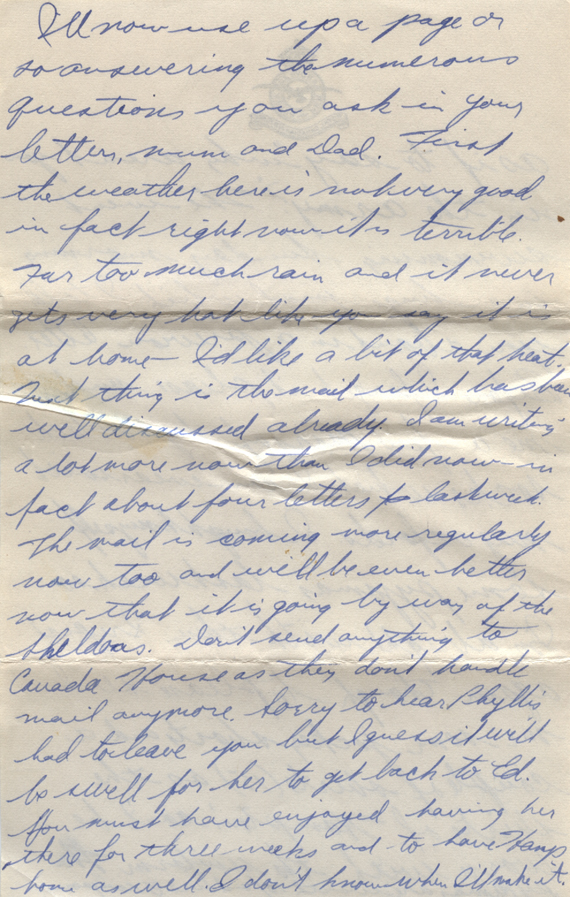 I'll now use up a page or
so answering the numerous
questions you ask in your
letters, mum and Dad. First
the weather here is not very good
in fact right now it is terrible.
Far too much rain and it never
gets very hot like you say it is
at home - I'd like a bit of that heat.
Next thing is the mail which has been
well discussed already. I am writing
a lot more now than I did now - in
fact about four letters last week.
The mail is coming more regularly
now too and will be even better
now that it is going by way of the
Sheldons. Don't send anything to
Canada House as they don't handle
mail anymore. Sorry to hear Phyllis
had to leave you but I guess it will
be swell for her to get back to Ed.
You must have enjoyed having her
there for three weeks and to have
home as well. I don't know when I'll make it.